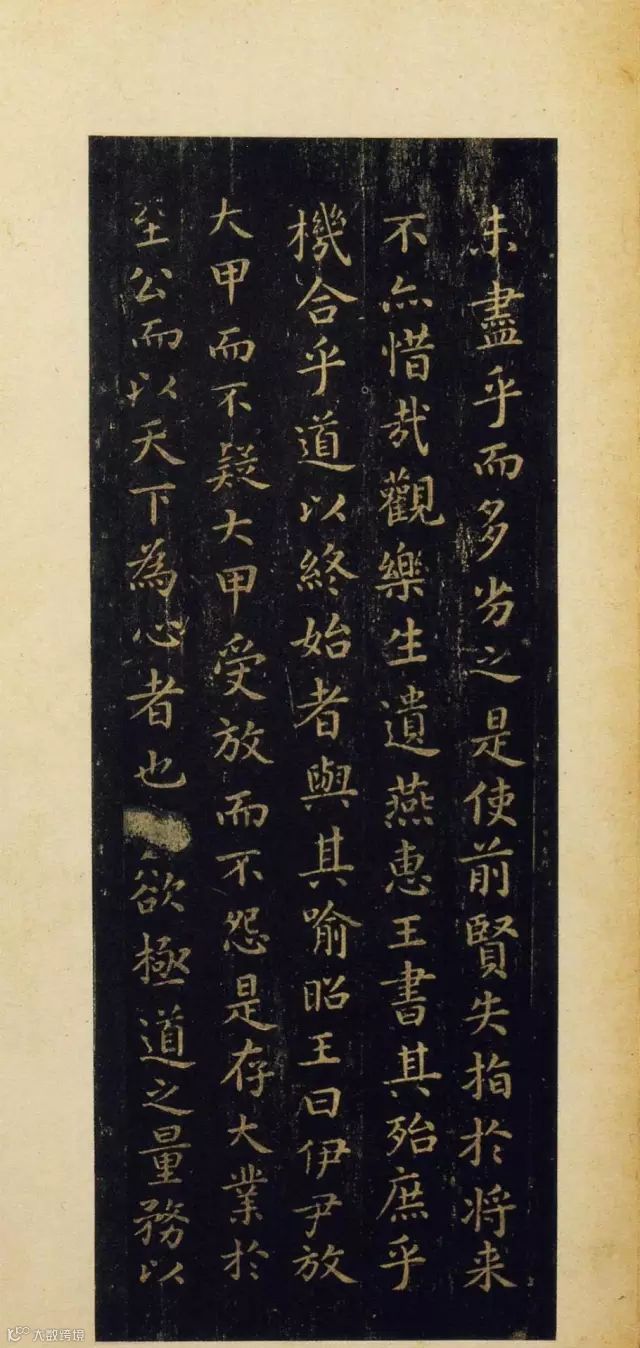 未盡乎而多劣之是使前賢失指於将来
不亦惜哉觀樂生遺燕惠王書其殆庶乎
機合乎道以終始者與其喻昭王曰伊尹放
大甲而不疑大甲受放而不怨是存大業於
至公而以天下為心者也欲極道之量務以
大数跨境